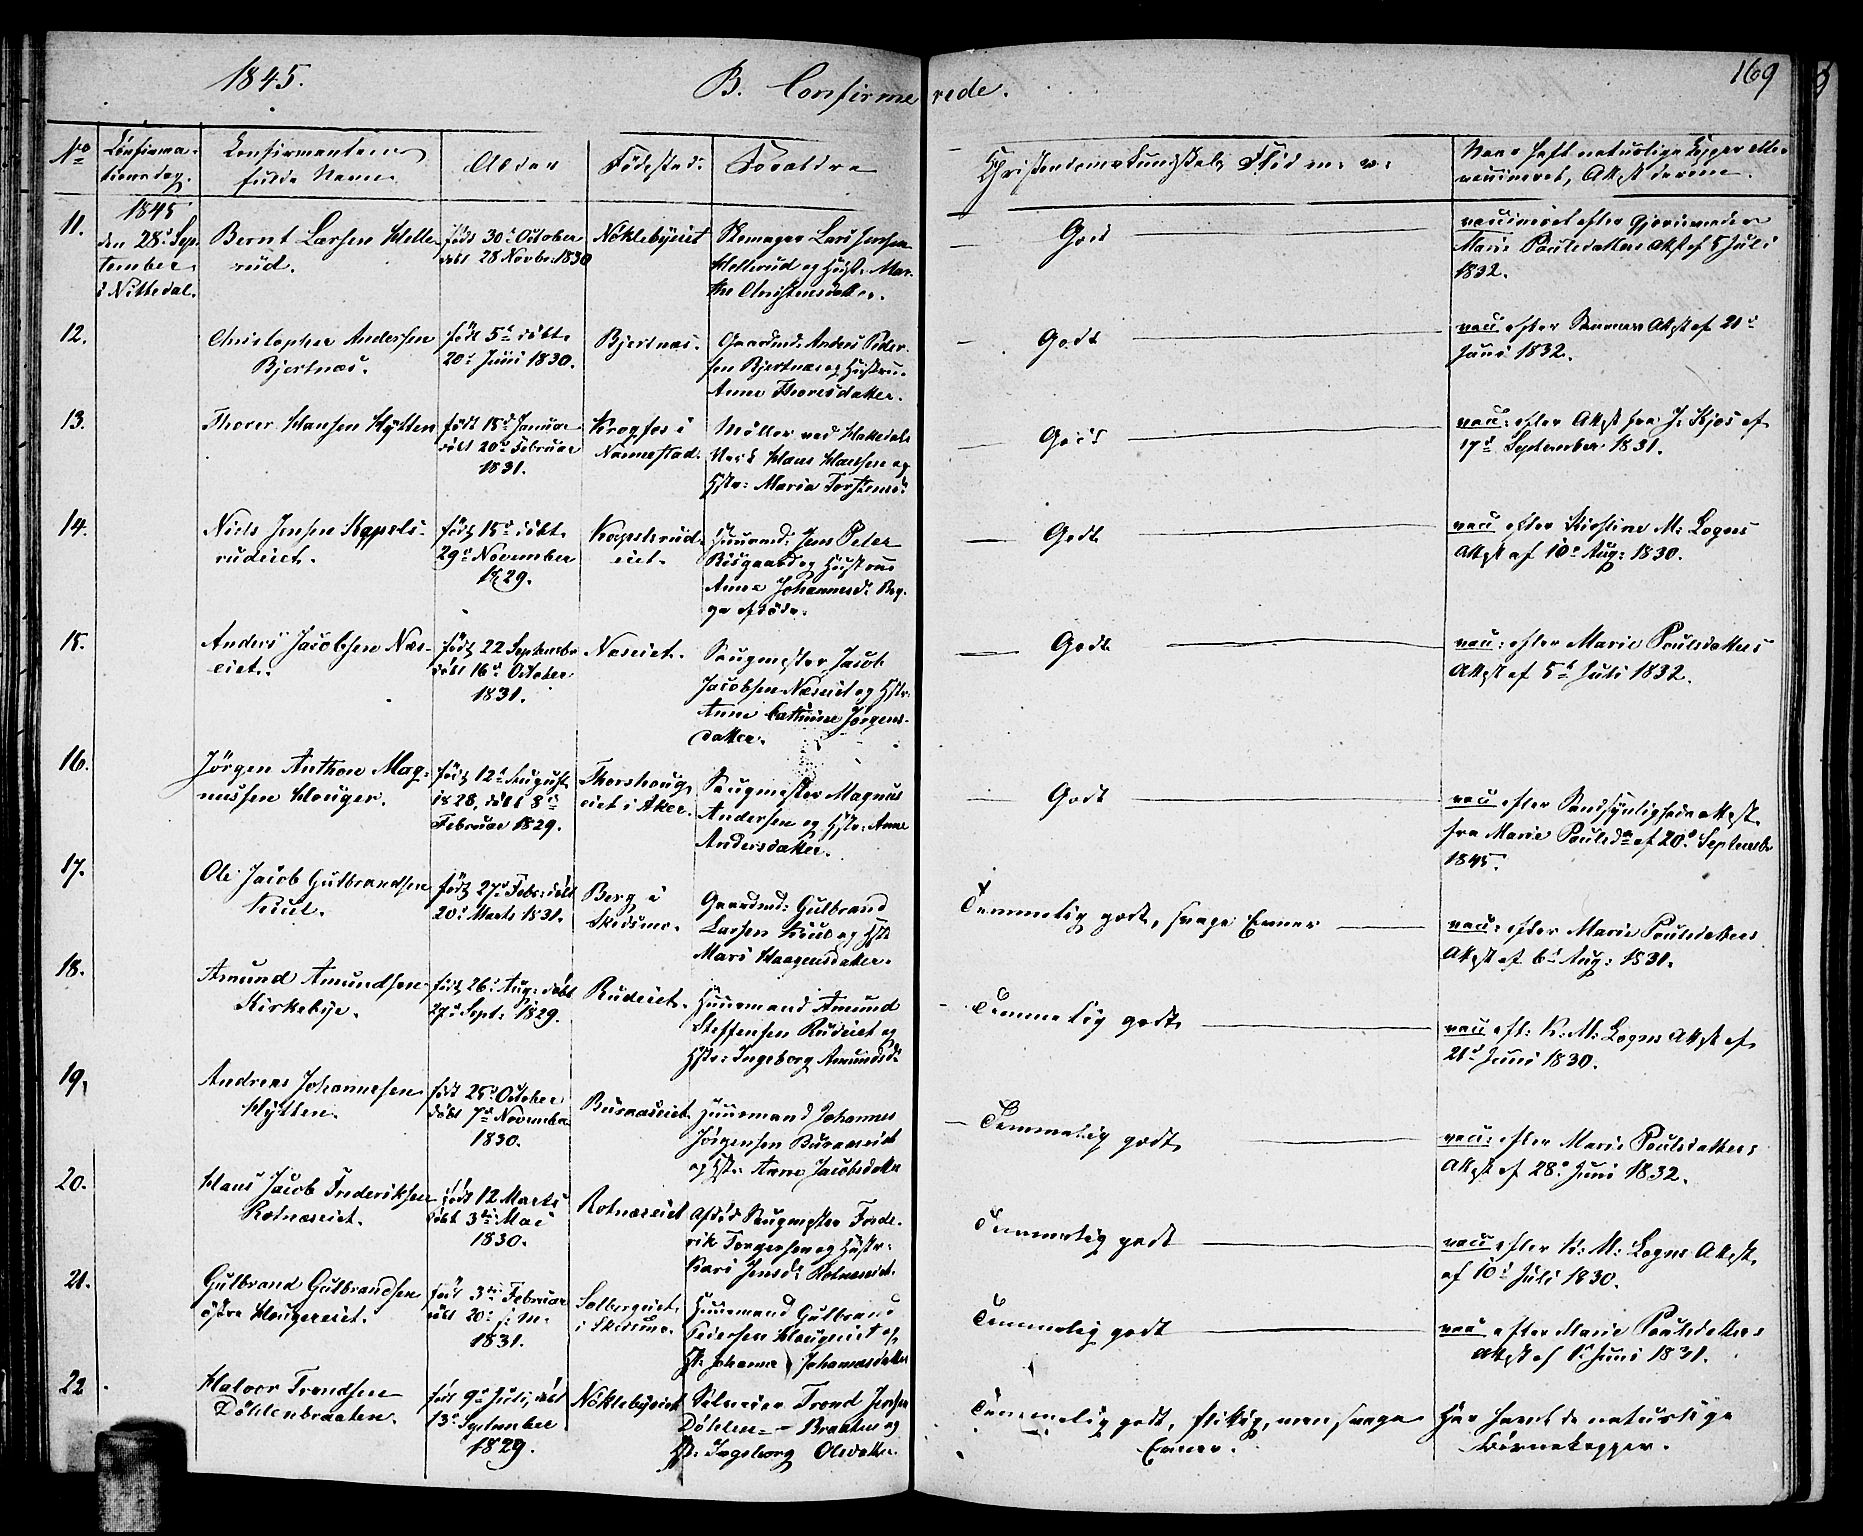 1845.
B. Confirmerede.
169
No
Confirma-
tionsdag.
Confirmantens
fulde Navn.
Alder
Födested.
Forældre
Christendomskundskab, Flid m. v.
Naar havt naturlige Kopper eller
vaccineret, Attest derom.
11.
1845
den 28de Sep-
tember
i Nittedal.
Bernt Larsen Helle-
rud.
född 30te October
döbt 28 Novbr. 1830
Nöklebyeiet
Skomager Lars Jensen
Hellerud og Hust: Mar-
the Christensdatter.
Godt
vaccineret efter Gjordemoder
Marie Poulsdatters Attest af 5 Juli
1832.
12.
Christopher Andersen
Bjertnæs.
född 5te döbt
20de Juni 1830.
Bjertnæs.
Gaardmd: Anders Peder-
sen Bjertnæs og Hustru
Anne Thoresdatter.
Godt
vacc efter Attest af 21de
Juni 1832.
13.
Thorer Hansen Hytten
född 15de Januar
döbt 20de Februar
1831.
Krogfos i
Nannestad.
Möller ved Hakedals
Værk Hans Hansen og
Hstr: Maria Torstensd:
Godt
vacc: efter Attest fra J. Kjos af
17de September 1831.
14.
Niels Jensen Kapels-
rudeiet.
född 15de döbt
29de November
1829.
Kapelsrud-
eiet.
Huusmd: Jens Peter
Bisgaard og Hustrue
Anne Johannesd: Beg-
ge aföde.
Godt
vacc efter Kirstine M: Logns
Attest af 10de Aug: 1830.
15.
Anders Jacobsen Næs-
eiet.
född 22 Septembr
döbt 16de October
1831.
Næseiet.
Saugmester Jacob
Jacobsen Næseiet og Hstr.
Anne Cathrine Jörgens-
datter.
Godt
vacc: efter Marie Poulsdatters
Attest af 5te Juli 1832.
16.
Jörgen Anthon Mag-
nussen Hauger.
född 12te August
1828, döbt 8de
Februar 1829.
Thorshoug-
eiet i Aker.
Saugmester Magnus
Andersen og Hstr: Anne
Andersdatter.
Godt
vacc efter Sandsynlighedsattest
fra Marie Poulsdr af 20de Septembr
1845.
17.
Ole Jacob Gulbrandsen
Kruel.
född 27de Febr: döbt
20de Marts 1831.
Berg i
Skedsmo.
Gaardmd: Gulbrand
Larsen og Hstr
Mari Haagensdatter.
Temmelig godt, svage Evner
vacc: efter Marie Poulsdatters
Attest af 6te Aug: 1831.
18.
Amund Amundsen
Kirkebye.
född 26de Aug: döbt
27de Sept: 1829.
Rudeiet.
Huusmand Amund
Steffensen Rudeiet og
Hstr: Ingeborg Amundsdr
Temmelig godt
vacc eft: K: M: Logns Attest af
21de Juni 1830.
19.
Andreas Johannesen
Hytten.
född 25de October
döbt 7de November
1830.
Buraaseiet
Huusmand Johannes
Jörgensen Buraaseiet
og Hst: Anne Jacobsdatter
Temmelig godt
vacc: efter Marie Poulsdatters
Attest af 28de Juni 1832.
20.
Hans Jacob Frederiksen
Rotnæseiet.
född 12 Marts
döbt 3die Mai
1830.
Rotnæseiet
Afdöd Saugmester Frede-
rik Torgersen og Hustr:
Kari Jensdr Rotnæseiet.
Temmelig godt
vacc efter K: M: Logns Attest
af 10de Juli 1830.
21.
Gulbrand Gulbrandsen
östre Haugereiet.
född 3die Februar
döbt 20de s: m.
1831.
Solbergeiet
i Skedsmo.
Huusmand Gulbrand
Pedersen Haugeiet og
Hst: Johanne Johannesdatter
Temmelig godt
vacc efter Marie Poulsdatters
Attest af 1ste Juni 1831.
22.
Halvor Trondsen
Döhlenbraaten.
född 9de Juli, döbt
13de September
1829.
Nöklebyeiet
Selveier Trond Jensen
Döhlen-Braaten og
Hst: Ingeborg Olsdatter.
Temmelig godt, flittig, men svage
Evner.
Har havt de naturlige
Börnekopper.